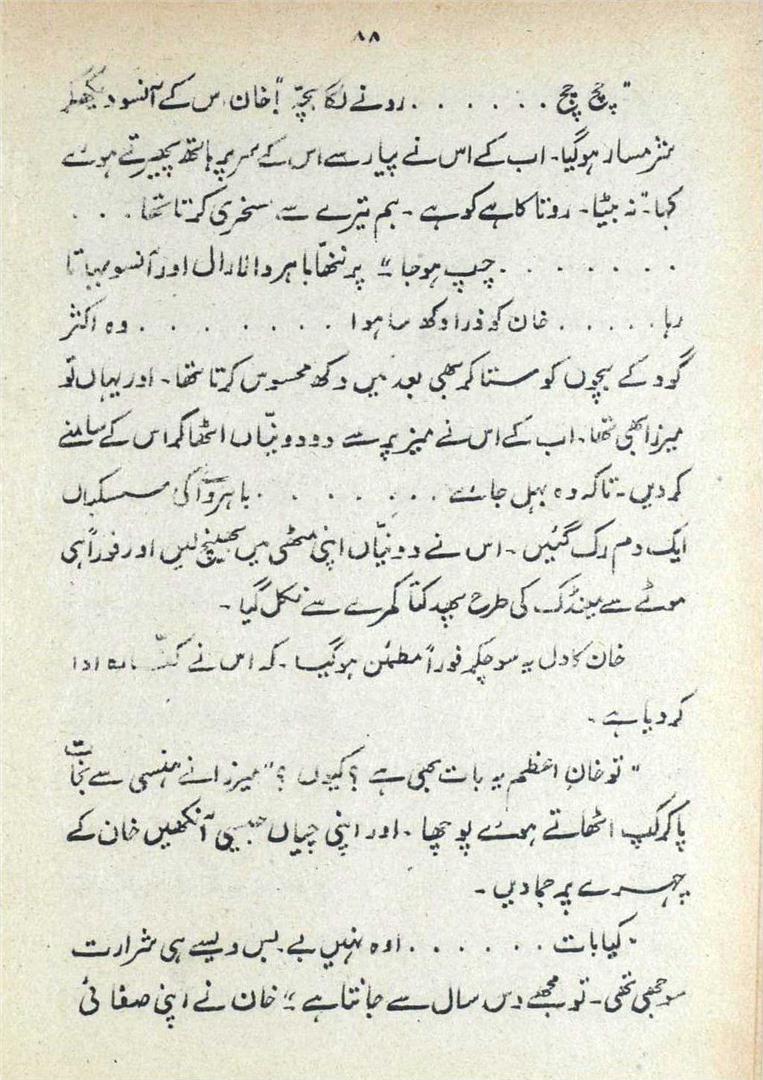 ۸۸
"چچ چچ . . . . . . رونے لگا بچہ"! خان اس کے آنسو دیکھکر
شرمسار ہوگیا۔ اب کے اس نے پیار سے اس کے سر پر ہاتھ پھیرتے ہوئے
کہا۔ "نہ بیٹا۔ رونا کاہے کو ہے ۔ ہم تیرے سے سخری کرتا تھا . . .
. . . . . . . . چپ ہوجا"۔ پر ننھا باہر والا رال اور آنسو بہاتا
رہا . . . . . خان کو ذرا دکھ سا ہوا . . . . . . . . وہ اکثر
گود کے بچوں کو ستا کر بھی بعد میں دکھ محسوس کرتا تھا۔ اور یہاں تو
میرزا بھی تھا۔ اب کے اس نے میز پر سے دو دونیّاں اٹھا کر اس کے سامنے
کر دیں۔ تاکہ وہ بہل جائے . . . . . . . باہر والا کی سسکیاں
ایک دم رک گئیں ۔ اس نے دونیّاں اپنی مٹھی میں بھینچ لیں اور فوراً ہی
موٹے سے مینڈک کی طرح پھدکتا کمرے سے نکل گیا ۔
خان کا دل یہ سوچکر فوراً مطمئن ہوگیا ۔ کہ اس نے کفّارہ ادا
کر دیا ہے ۔
"تو خانِ اعظم یہ بات بھی ہے ؟ کیوں ؟" میرزا نے ہنسی سے نجات
پا کر کپ اٹھاتے ہوئے پوچھا ۔ اور اپنی چیاں جیسی آنکھیں خان کے
چہرے پر جما دیں ۔
"کیا بات . . . . . . اوہ نہیں بے بس ویسے ہی شرارت
سوجھی تھی۔ تو مجھے دس سال سے جانتا ہے"۔ خان نے اپنی صفائی